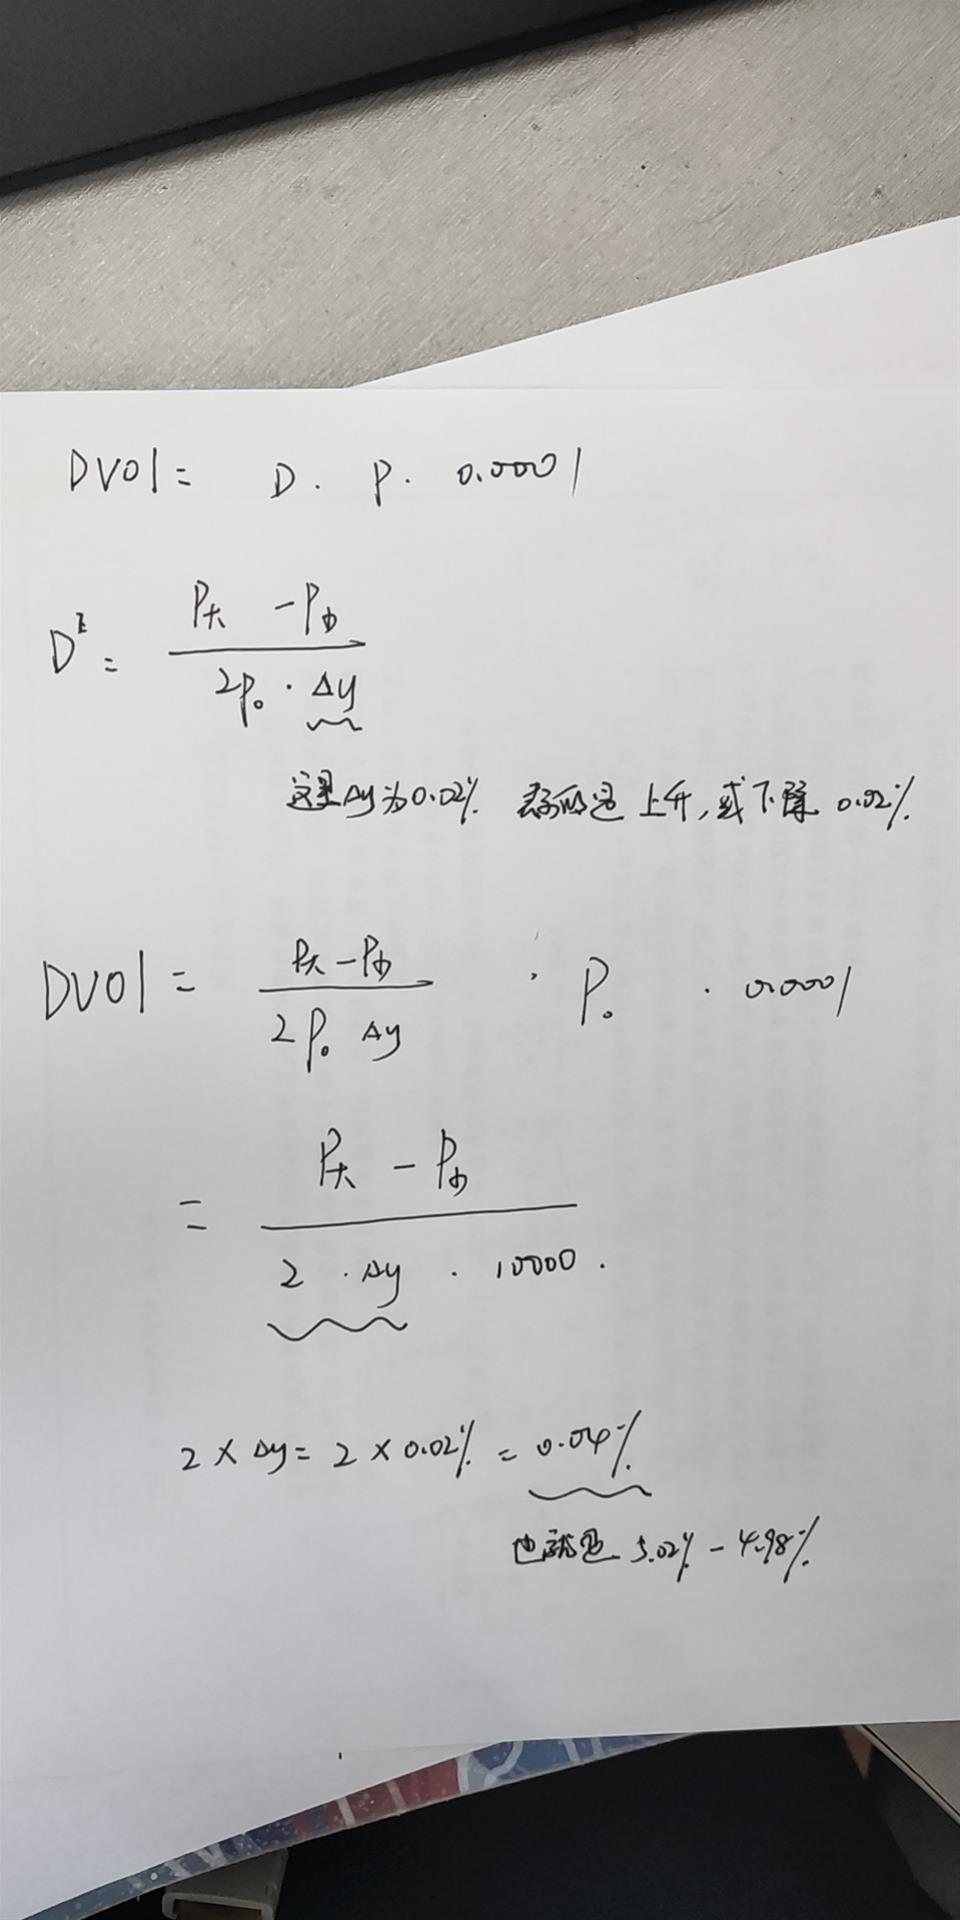 DV01 = D · P · 0.0001
D^E = (P大 - P小) / (2P₀ · Δy)
这里Δy为0.02% 表示的是上升,或下降 0.02%
DV01 = (P大 - P小) / (2P₀ Δy) · P₀ · 0.0001
= (P大 - P小) / (2 · Δy · 10000)
2 × Δy = 2 × 0.02% = 0.04%
也就是 5.02% - 4.98%